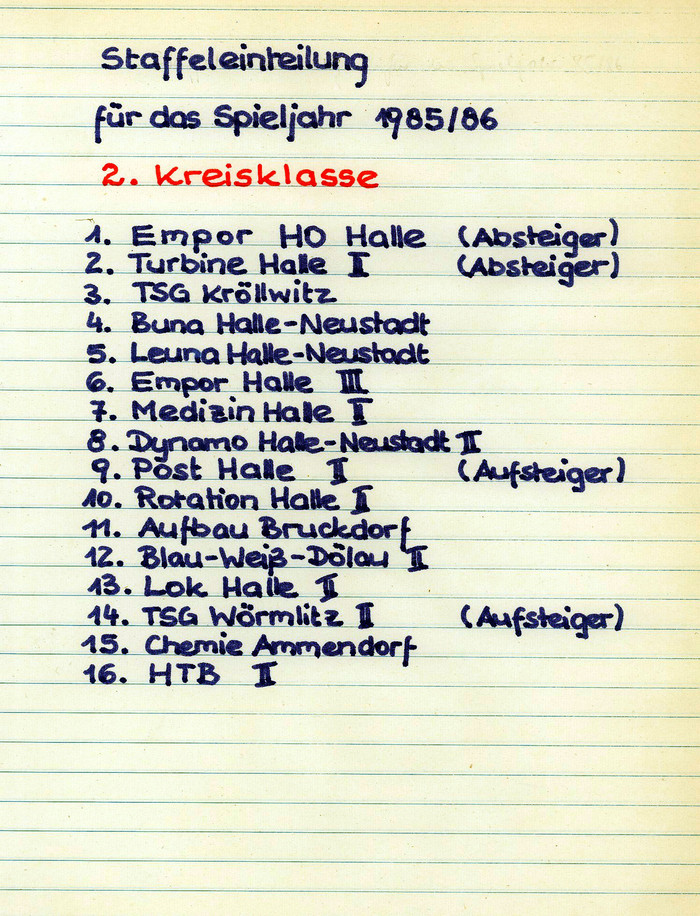 Staffeleinteilung
für das Spieljahr 1985/86
2. Kreisklasse
1. Empor HO Halle (Absteiger)
2. Turbine Halle II (Absteiger)
3. TSG Kröllwitz
4. Buna Halle-Neustadt
5. Leuna Halle-Neustadt
6. Empor Halle III
7. Medizin Halle II
8. Dynamo Halle-Neustadt II
9. Post Halle II (Aufsteiger)
10. Rotation Halle II
11. Aufbau Bruckdorf
12. Blau-Weiß-Dölau II
13. Lok Halle II
14. TSG Wörmlitz II (Aufsteiger)
15. Chemie Ammendorf
16. HTB II